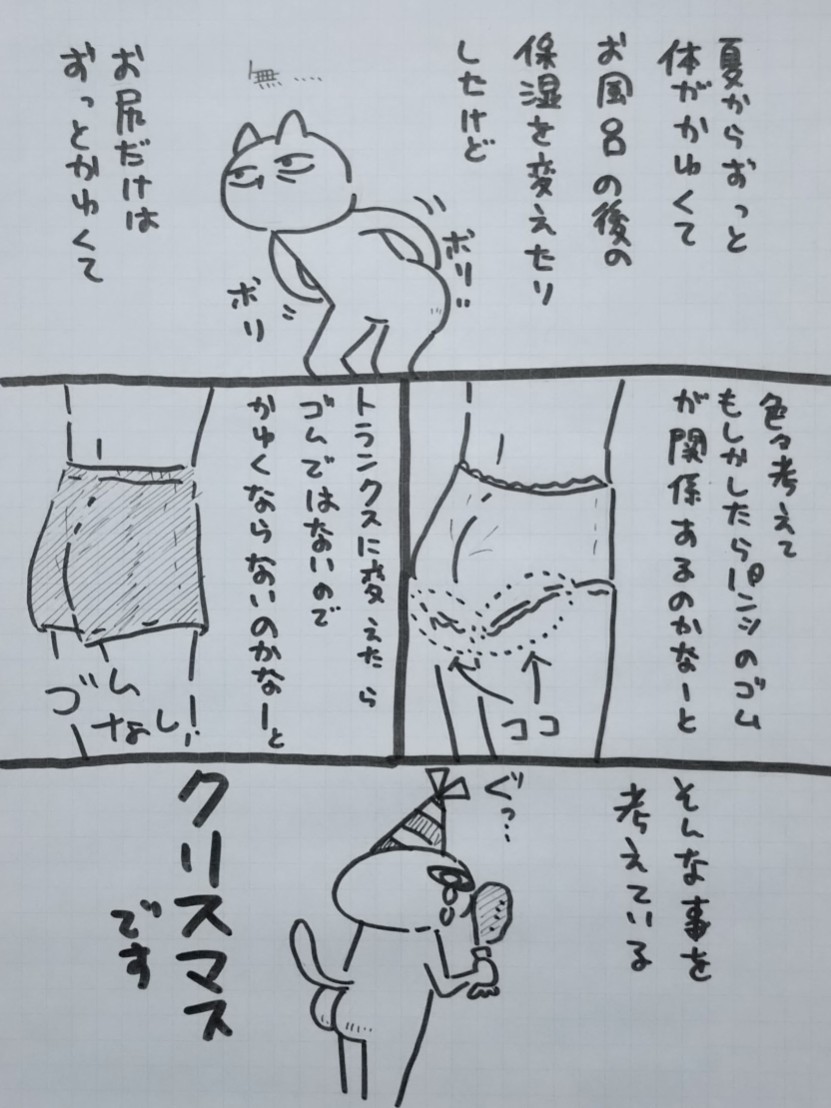 夏からずっと
体がかゆくて
お風呂の後の
保湿を変えたり
したけど
無‥‥
ボリ
ボリ
お尻だけは
ずっとかゆくて
色々考えて
もしかしたらパンツのゴム
が関係あるのかなーと
ココ
トランクスに変えたら
ゴムではないので
かゆくならないのかなーと
ゴム
なし!
そんな事を
考えている
ぐっ…
クリスマス
です